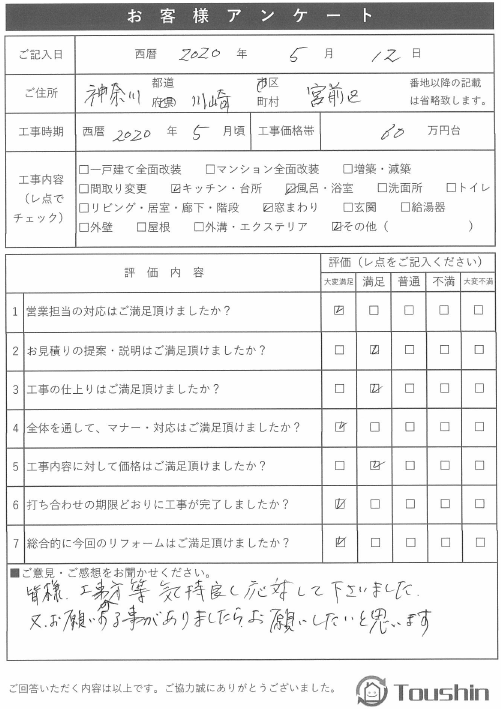 お客様アンケート
ご記入日 西暦 2020 年 5 月 12 日
ご住所 神奈川 都道府県 川崎 市区町村 宮前区 番地以降の記載は省略致します。
工事時期 西暦 2020 年 5 月頃 工事価格帯 60 万円台
工事内容（レ点でチェック）
□一戸建て全面改装 □マンション全面改装 □増築・減築
□間取り変更 ☑キッチン・台所 ☑風呂・浴室 □洗面所 □トイレ
□リビング・居室・廊下・階段 ☑窓まわり □玄関 □給湯器
□外壁 □屋根 □外溝・エクステリア ☑その他（ ）
評価内容 評価（レ点をご記入ください）
大変満足 満足 普通 不満 大変不満
1 営業担当の対応はご満足頂けましたか？ ☑ □ □ □ □
2 お見積りの提案・説明はご満足頂けましたか？ □ ☑ □ □ □
3 工事の仕上りはご満足頂けましたか？ □ ☑ □ □ □
4 全体を通して、マナー・対応はご満足頂けましたか？ ☑ □ □ □ □
5 工事内容に対して価格はご満足頂けましたか？ □ ☑ □ □ □
6 打ち合わせの期限どおりに工事が完了しましたか？ ☑ □ □ □ □
7 総合的に今回のリフォームはご満足頂けましたか？ ☑ □ □ □ □
■ご意見・ご感想をお聞かせください。
皆様、工事方等気持良く応対して下さいました.
又、お願いする事がありましたら、お願いしたいと思います
ご回答いただく内容は以上です。ご協力誠にありがとうございました。
Toushin